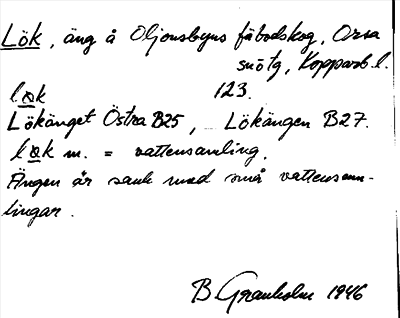 Lök, äng å Oljonsbyns fäbodskog, Orsa
snötg, Kopparb. l.
løk 123.
Lökänget Östra B25, Lökängen B27.
løk m. = vattensamling.
Ängen är sank med små vattensam-
lingar.
B. Granholm 1946